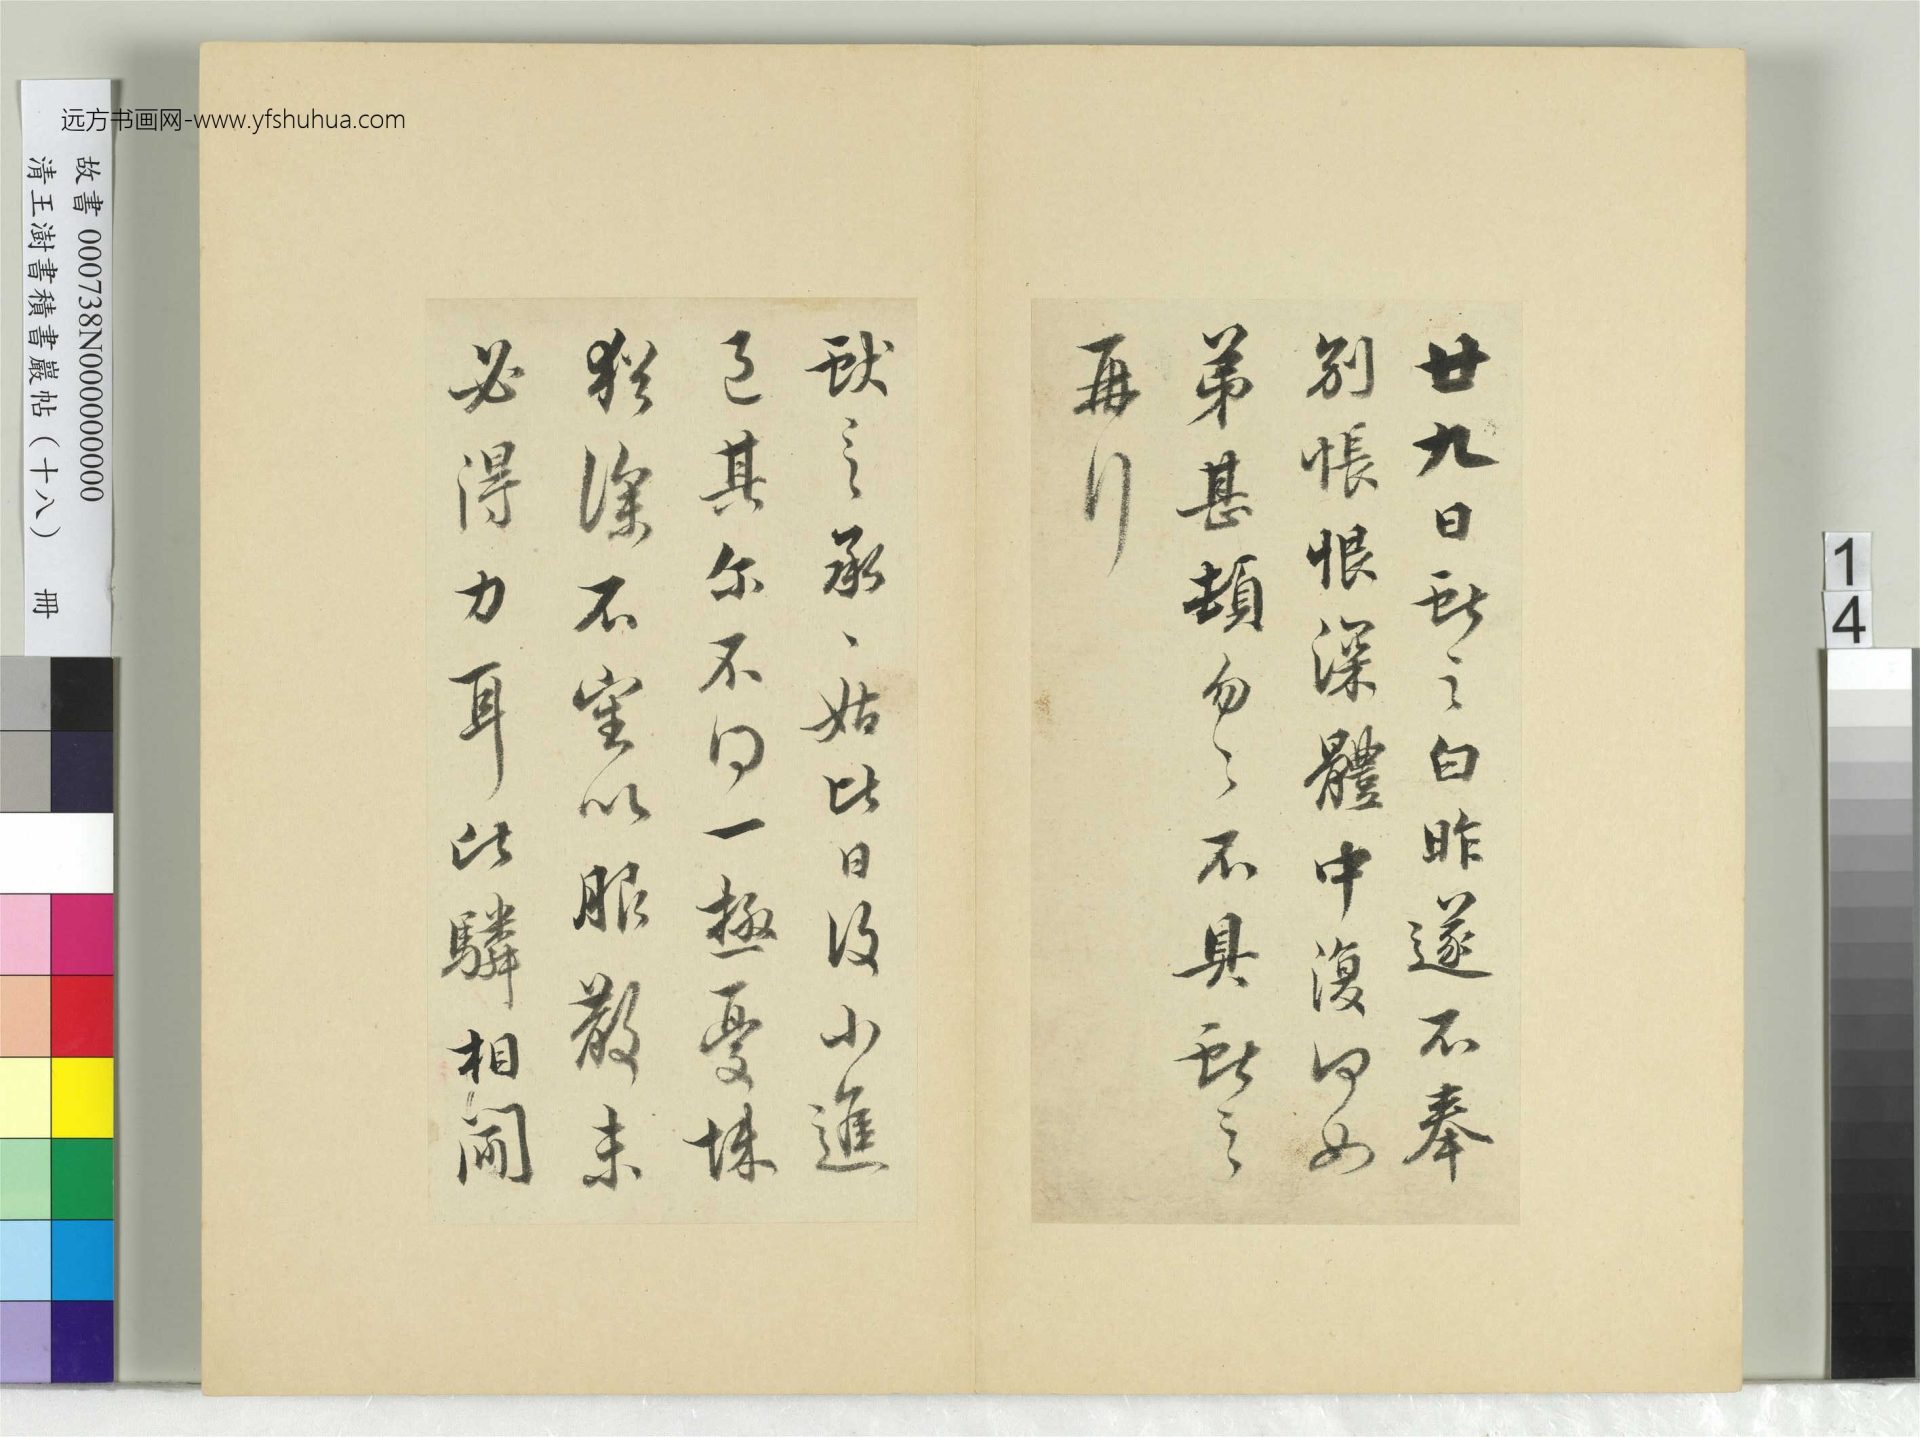 远方书画网-www.yfshuhua.com
故書 000738N000000000
清王澍書積書巖帖（十八） 冊
14
廿九日獻之白昨遂不奉
別悵恨深體中復何如
弟甚頓勿々不具獻之
再拜
獻之承、姑比日復小進
退其尔不得一極憂悚
猶深不審以服散未
必得力耳比驎相聞